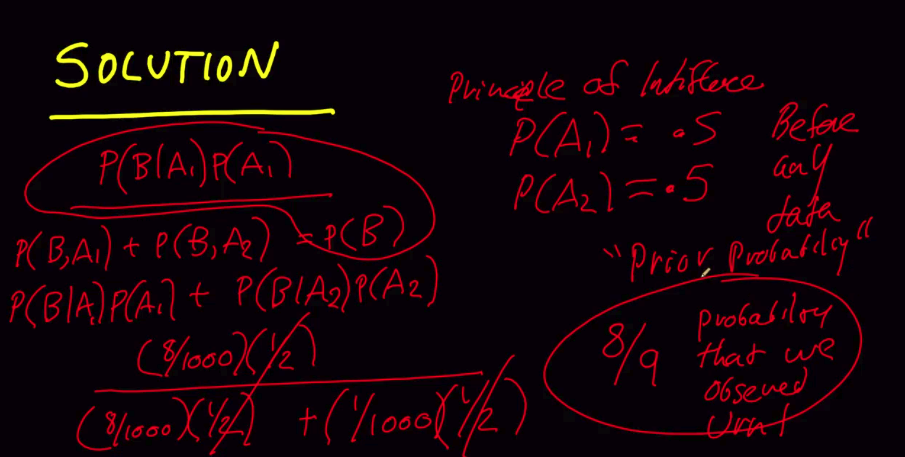 SOLUTION
P(B|A₁)P(A₁)
P(B,A₁) + P(B,A₂) = P(B)
P(B|A₁)P(A₁) + P(B|A₂)P(A₂)
(8/1000)(1/2)
(8/1000)(1/2) + (1/1000)(1/2)
Principle of
P(A₁) = .5
P(A₂) = .5
Before
any
data
"Prior Probability"
8/9
probability
that we
obseved
Urn 1